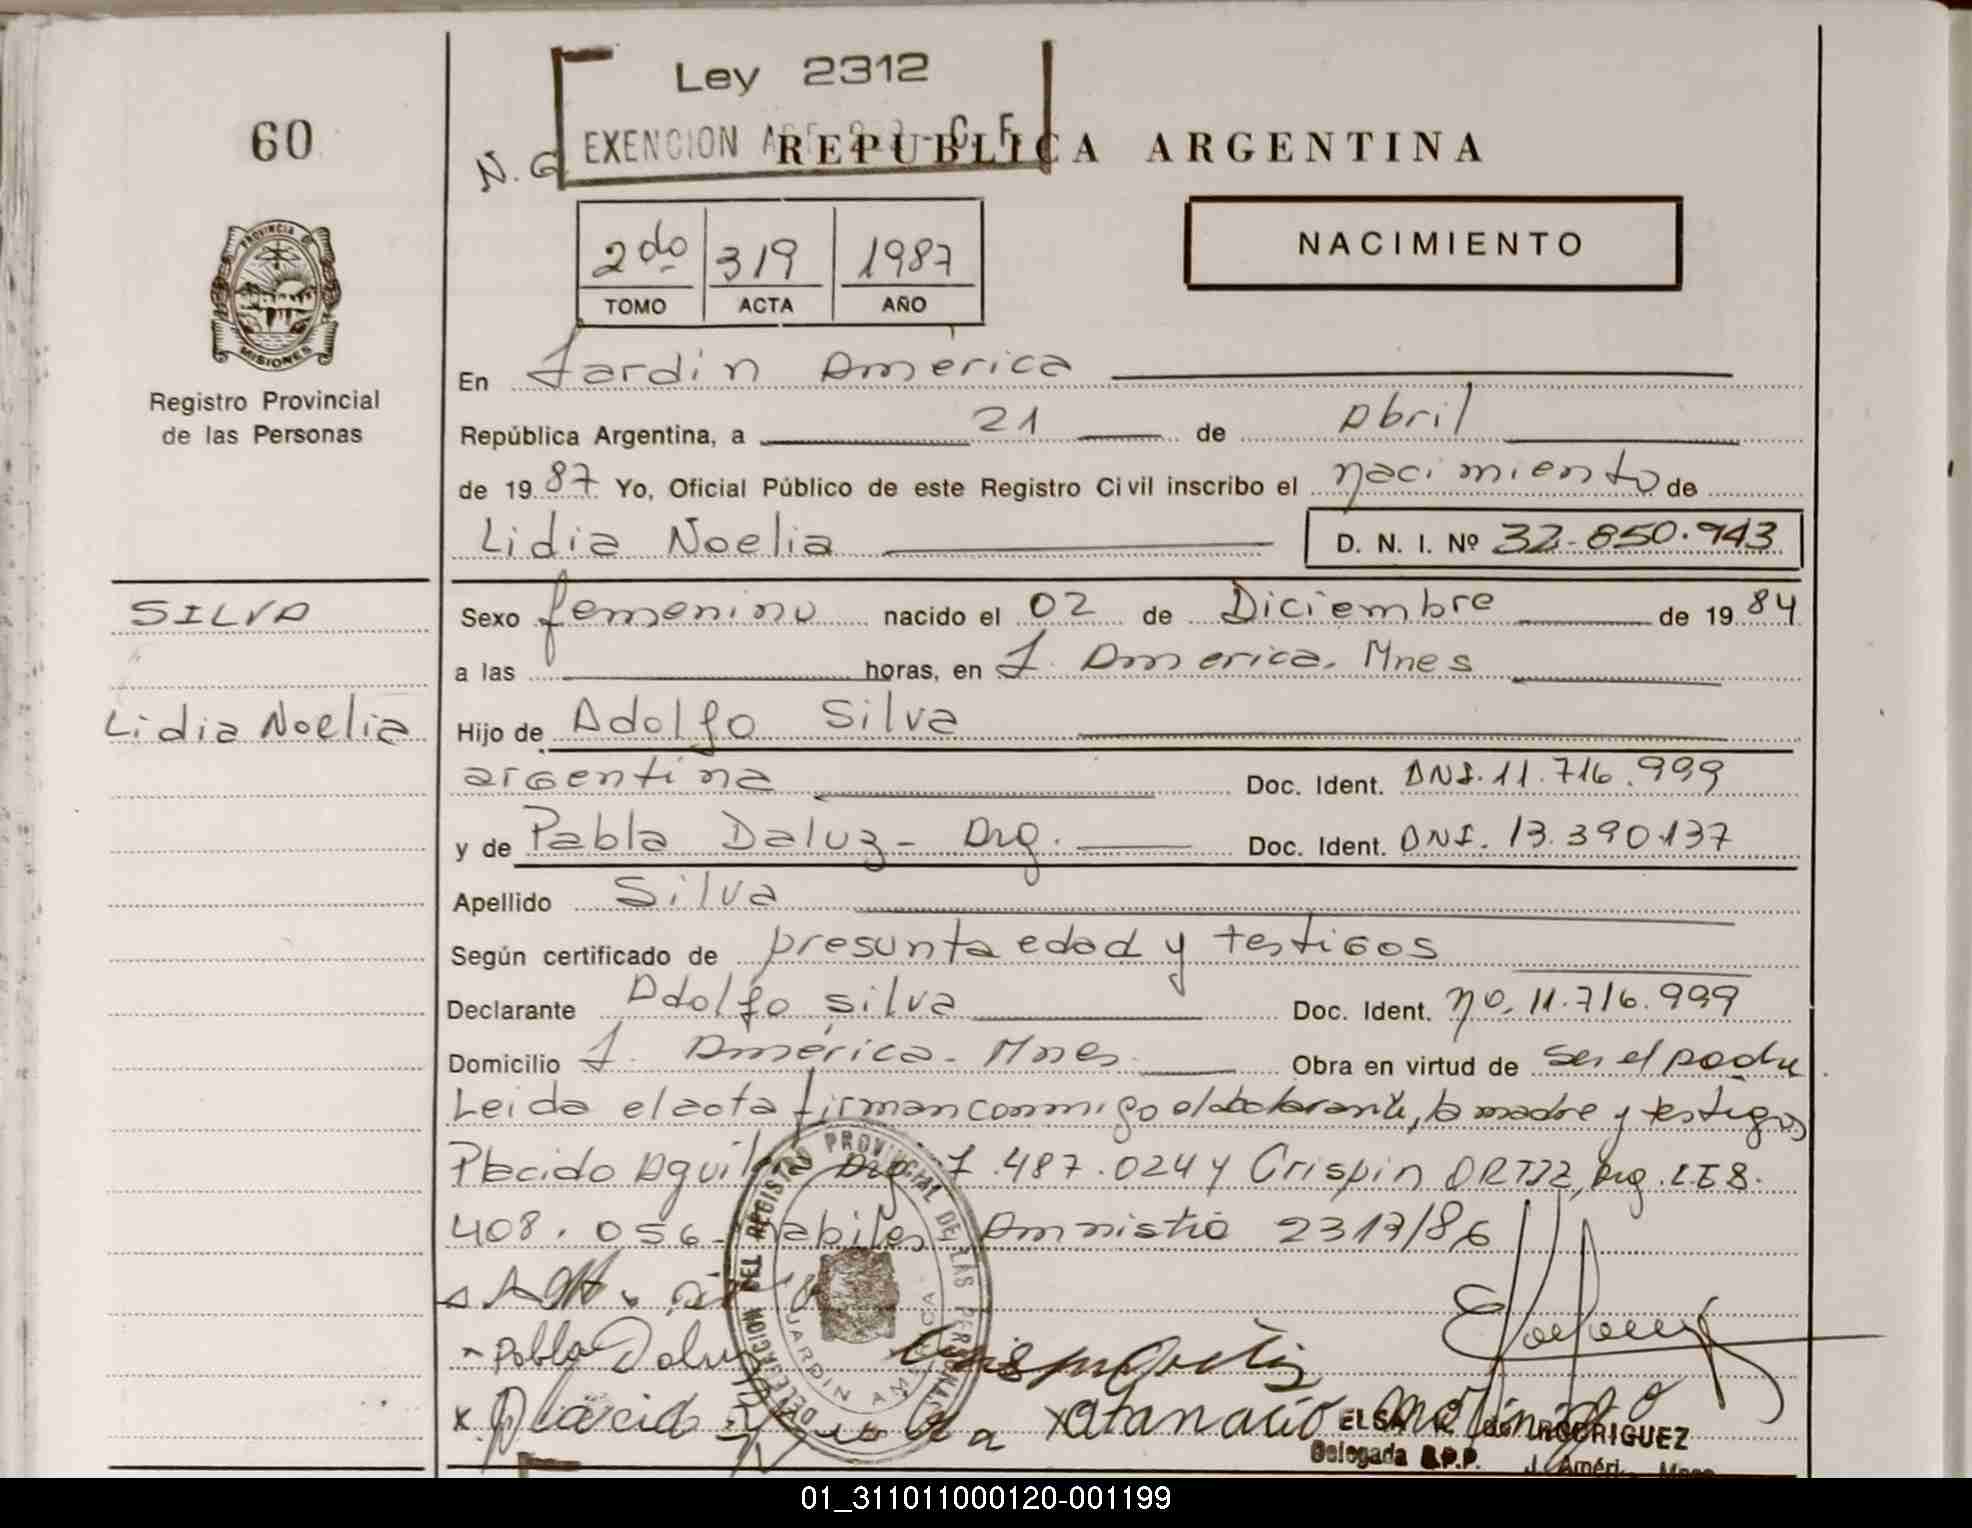 Ley 2312
60
EXENCION A
REPUBLICA ARGENTINA
N. G
2do 319 1987
TOMO ACTA AÑO
NACIMIENTO
PROVINCIA DE
MISIONES
Registro Provincial
de las Personas
En Jardin America
República Argentina, a 21 de Abril
de 1987 Yo, Oficial Público de este Registro Civil inscribo el nacimiento de
Lidia Noelia D. N. I. Nº 32.850.943
SILVA
Sexo femenino nacido el 02 de Diciembre de 1984
a las horas, en J. America. Mnes
Lidia Noelia
Hijo de Adolfo Silva
argentina Doc. Ident. DNI. 11.716.999
y de Pabla Daluz - Arg. Doc. Ident. DNI. 13.390.137
Apellido Silva
Según certificado de presunta edad y testigos
Declarante Adolfo silva Doc. Ident. no. 11.716.999
Domicilio J. América - Mnes Obra en virtud de ser el padre
Leida el acta firman conmigo el declarante, la madre y testigos
Placido Aguilera Arg. 7.487.024 y Crispin ORTIZ, Arg. L.E 8.
408.056 - habiles Amnistia 2317/86
DELEGACION DEL REGISTRO PROVINCIAL DE LAS PERSONAS
JARDIN AMERICA
Pabla Daluz
Crispin Ortiz
x Placido x Atanacio
ELSA RODRIGUEZ
Delegada R.P.P.
J. Améri
01_311011000120-001199